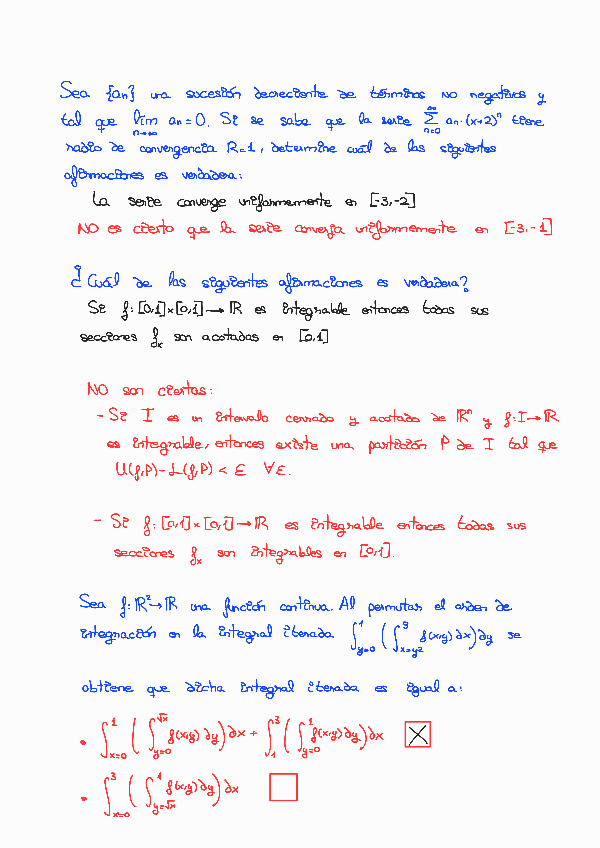 Sea {an} una sucesión decreciente de términos no negativos y
tal que lím n→∞ an = 0. Si se sabe que la serie ∞ Σ n=0 an·(x+2)^n tiene
radio de convergencia R=1, determine cuál de las siguientes
afirmaciones es verdadera:
La serie converge uniformemente en [-3,-2]
NO es cierto que la serie converja uniformemente en [-3,-1]
¿Cuál de las siguientes afirmaciones es verdadera?
Si f:[0,1]×[0,1]→ℝ es integrable entonces todas sus
secciones fx son acotadas en [0,1]
NO son ciertas:
- Si I es un intervalo cerrado y acotado de ℝⁿ y f:I→ℝ
es integrable, entonces existe una partición P de I tal que
U(f,P)-L(f,P) < ε ∀ε.
- Si f:[0,1]×[0,1]→ℝ es integrable entonces todas sus
secciones fx son integrables en [0,1].
Sea f:ℝ²→ℝ una función continua. Al permutar el orden de
integración en la integral iterada ∫_{y=0}^{1} (∫_{x=y²}^{3} f(x,y)∂x)∂y se
obtiene que dicha integral iterada es igual a:
• ∫_{x=0}^{1} (∫_{y=0}^{√x} f(x,y)∂y)∂x + ∫_{1}^{3} (∫_{y=0}^{1} f(x,y)∂y)∂x ☒
• ∫_{x=0}^{3} (∫_{y=√x}^{1} f(x,y)∂y)∂x ☐